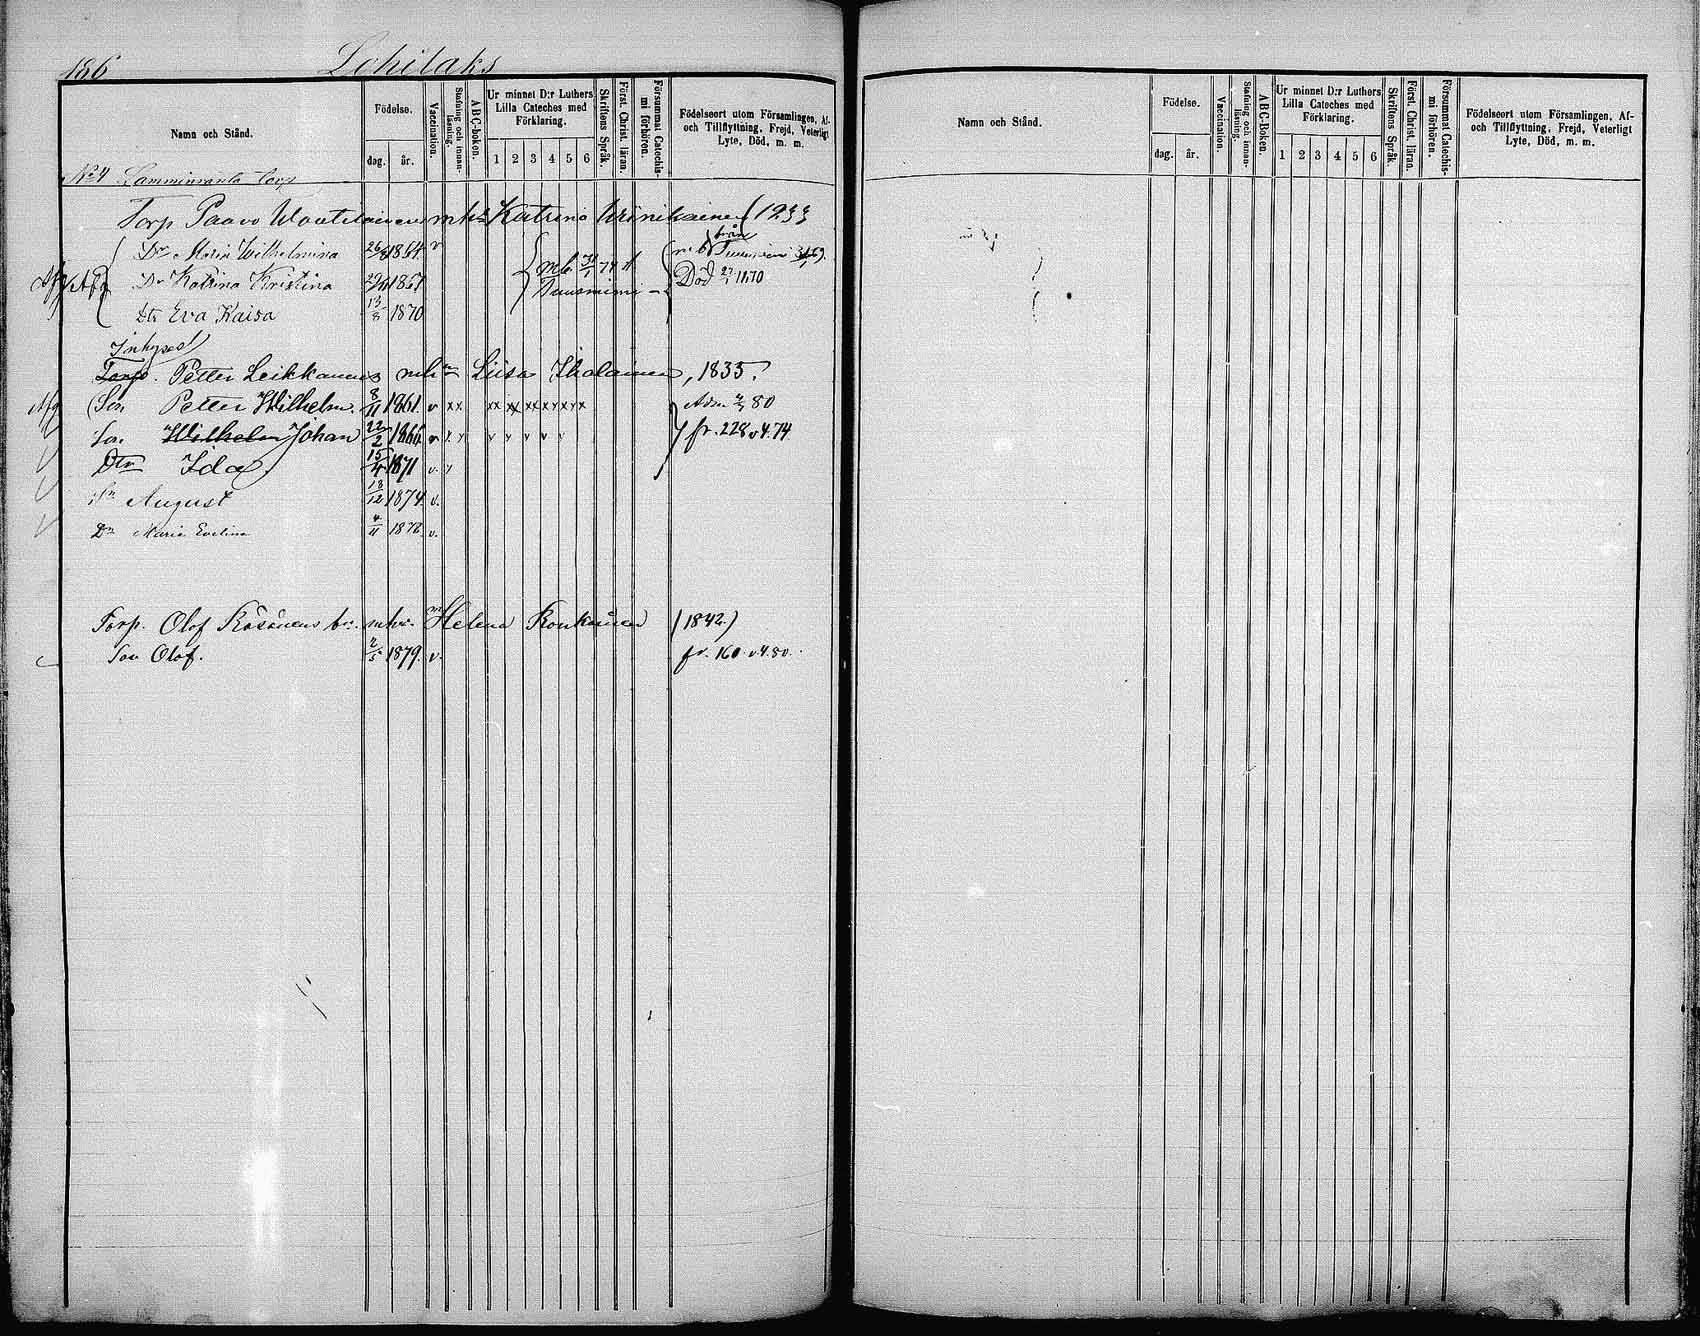 186 Lohilaks
Namn och Stånd.
Födelse.
dag. år.
Vaccination.
Stafning och innan-läsning.
ABC-boken.
Ur minnet D:r Luthers Lilla Cateches med Förklaring.
1 2 3 4 5 6
Skriftens Språk.
Först. Christ. läran.
Försummat Catechis-mi förhören.
Födelseort utom Församlingen, Af- och Tillflyttning, Frejd, Veterligt Lyte, Död, m. m.
No 4 Lamminranta Torp
Torp Paavo mh Katrina (1233
Dr Maria Wilhelmina 26/8 1864. v
Dr Katrina Kristina 1867 mb 31/1 74 Död 27/ 1870
Dtr Eva Kaisa 13/8 1870 Tuusniemi
Inhyses
Torp. Petter Leikkanens mh Liisa Iholainen, 1835.
Son Petter Wilhelm. 8/11 1861. v xx xx xx xx xx xx Adm. 80
Son Wilhelm Johan 22/2 1866 v x v v v v v v fr. 228 v4.74
Dtr Ida 15/4 1871 v. v
Sn August 18/12 1874. v.
Dr Maria Evelina 4/11 1878. v.
Torp. Olof Räsänens br. mhr Helena Konkainen (1842.)
Son Olof. 2/5 1879. v. fr. 160 v4.80.
Namn och Stånd.
Födelse.
dag. år.
Vaccination.
Stafning och innan-läsning.
ABC-Boken.
Ur minnet D:r Luthers Lilla Cateches med Förklaring.
1 2 3 4 5 6
Skriftens Språk.
Först. Christ. läran.
Försummat Catechis-mi förhören.
Födelseort utom Församlingen, Af- och Tillflyttning, Frejd, Veterligt Lyte, Död, m. m.